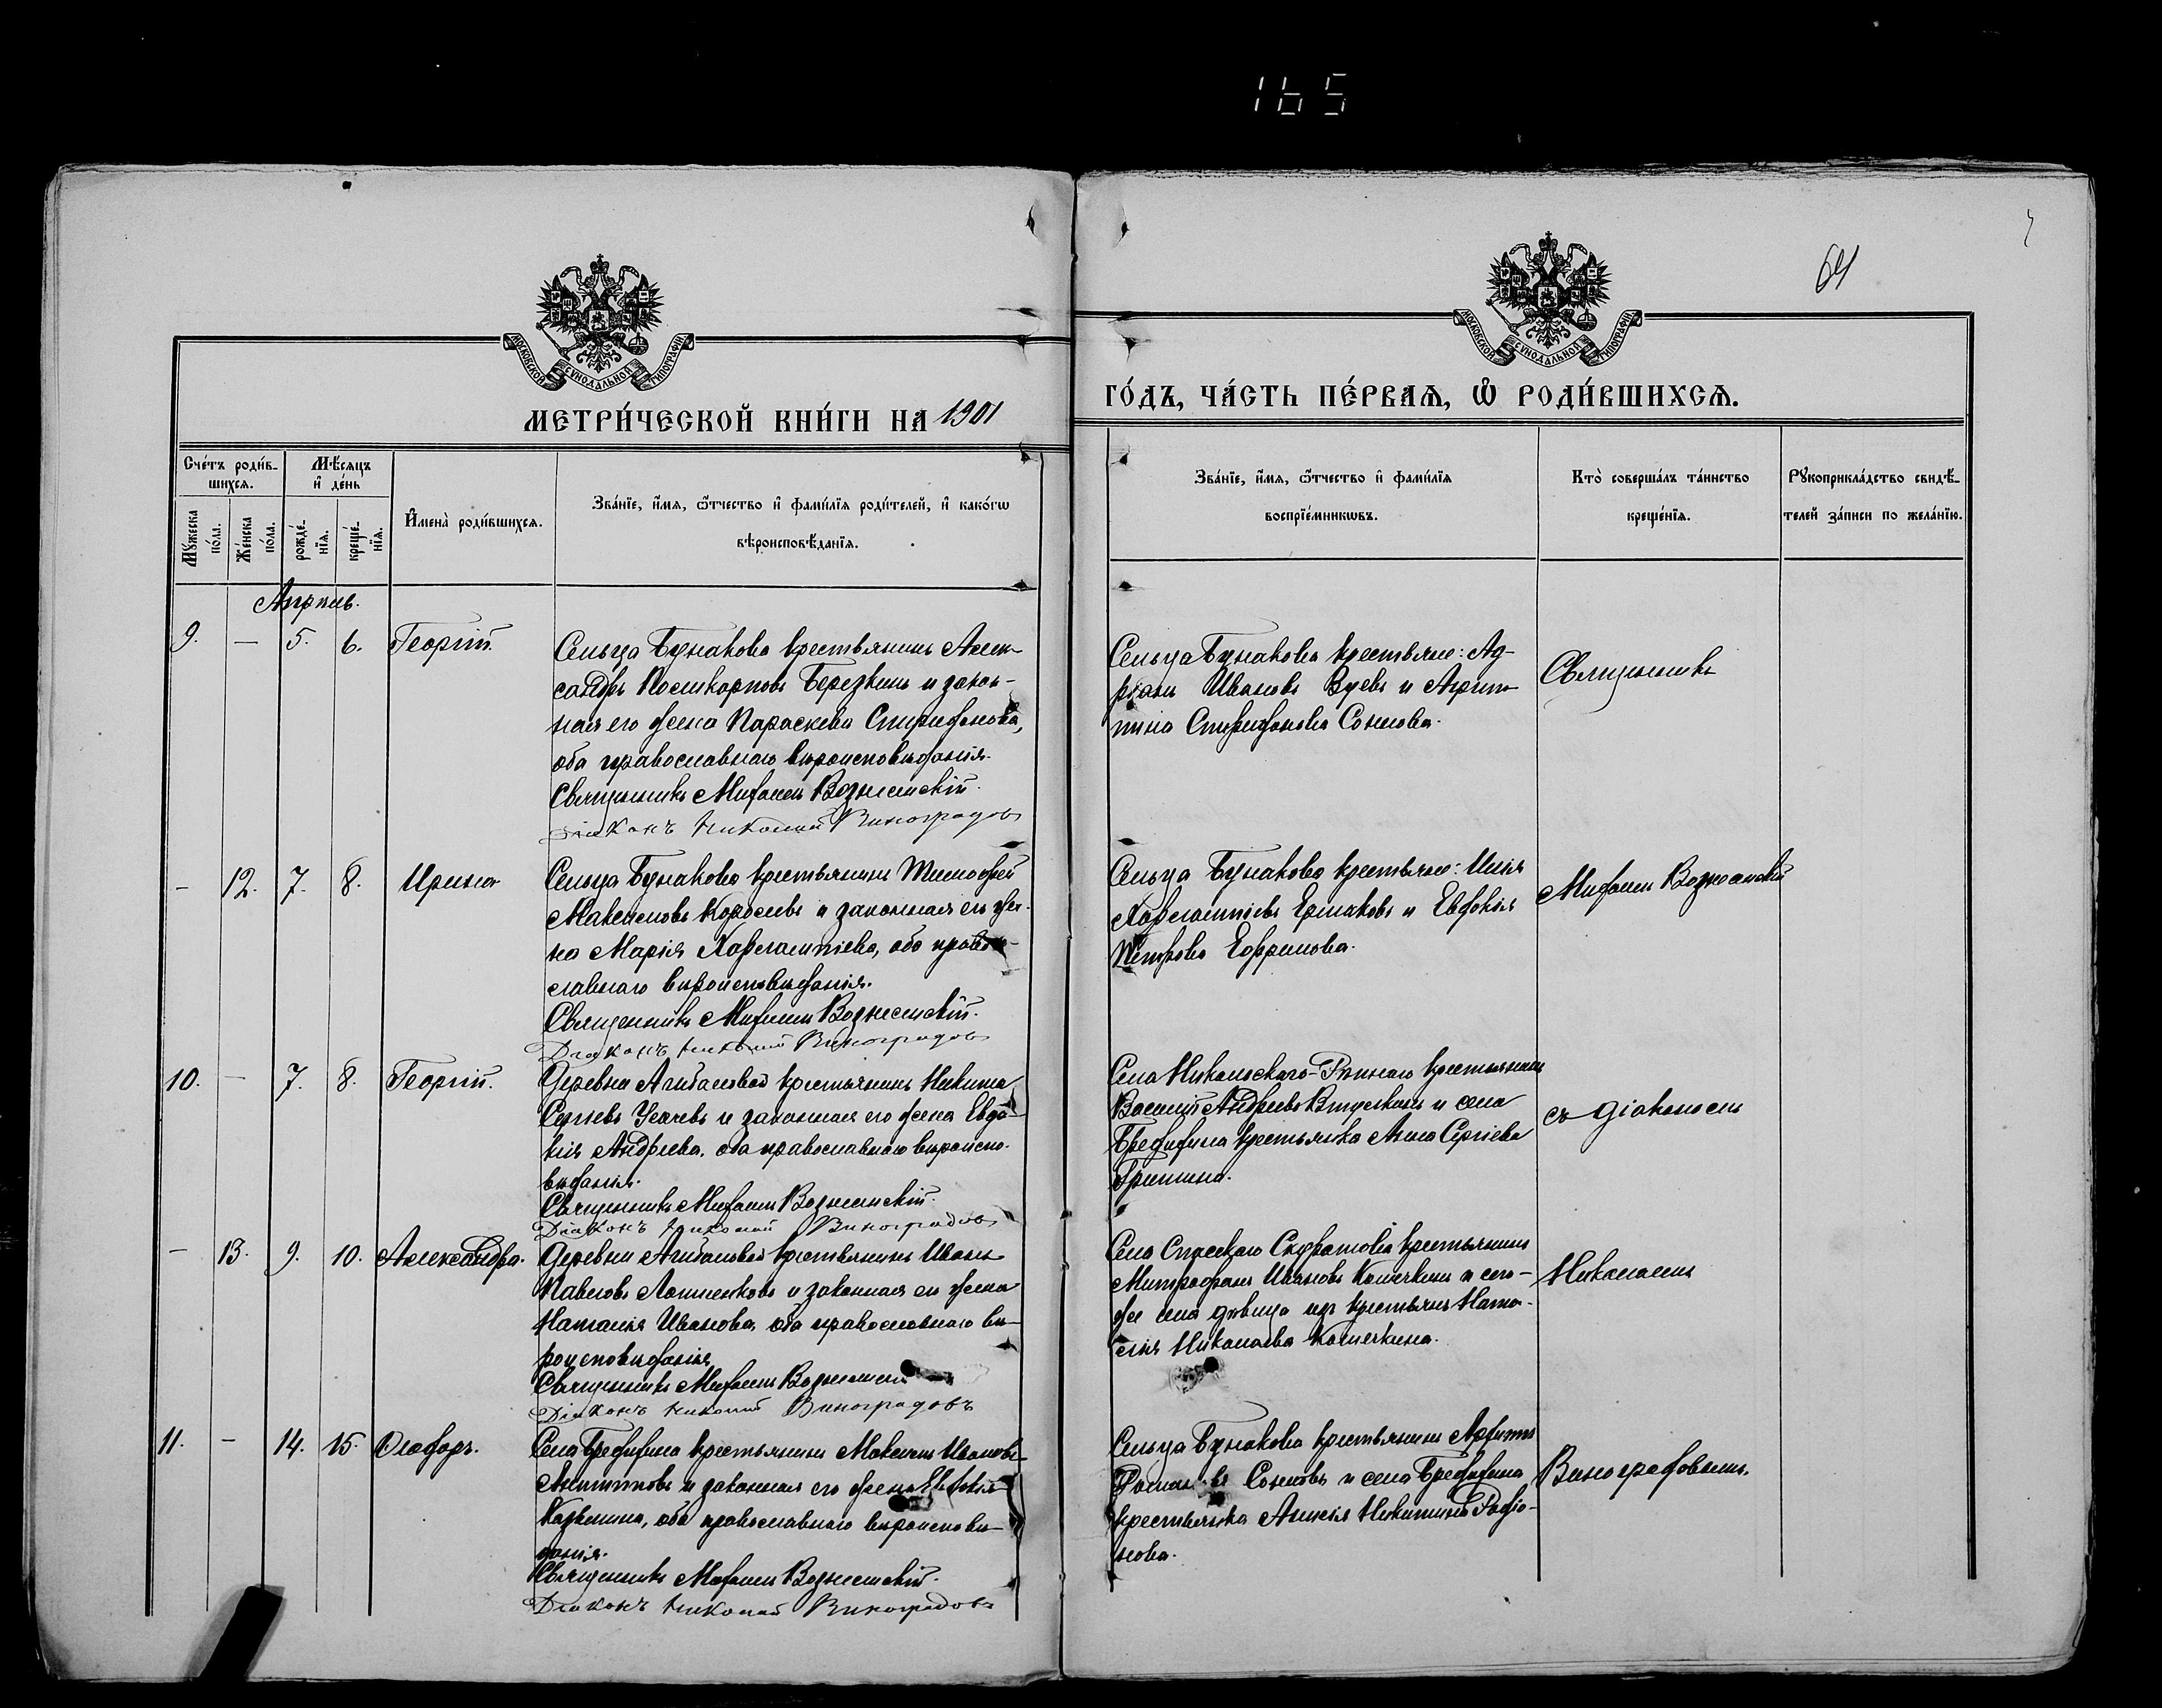 165
64
МОСКОВСКОЙ СѴНОДАЛЬНОЙ ТИПОГРАФІИ
МОСКОВСКОЙ СѴНОДАЛЬНОЙ ТИПОГРАФІИ
МЕТРИ́ЧЕСКОЙ КНИ́ГИ НА 1901
ГО́ДЪ, ЧА́СТЬ ПЕ́РВАѦ, Ѡ҆ РОДИ́ВШИХСѦ.
Сче́тъ роди́в-
шихсѧ.
Мѣ́сѧцъ
и҆ де́нь
Мꙋ́жеска
по́ла.
Же́нска
по́ла.
рожде́-
нїѧ.
креще́-
нїѧ.
И҆мена̀ роди́вшихсѧ.
Зва́нїе, и҆́мѧ, ѻ҆́тчество и҆ фами́лїѧ роди́телей, и҆ како́гѡ
вѣроисповѣ́данїѧ.
Зва́нїе, и҆́мѧ, ѻ҆́тчество и҆ фами́лїѧ
воспрїе́мникѡвъ.
Кто̀ соверша́лъ та́инство
креще́нїѧ.
Рꙋкоприкла́дство свидѣ́-
телей за́писи по жела́нїю.
Апрѣль.
9. — 5. 6. Георгій.
Сельца Бунакова крестьянинъ Алек-
сандръ Поликарповъ Березкинъ и закон-
ная его жена Параскева Спиридонова,
оба православнаго вѣроисповѣданія.
Священникъ Михаилъ Вознесенскій.
Діаконъ Николай Виноградовъ
Сельца Бунакова крестьяне: Ад-
ріанъ Ивановъ Зуевъ и Агрип-
пина Спиридонова Сонмова.
Священникъ
— 12. 7. 8. Ирина
Сельца Бунакова крестьянинъ Тимофей
Максимовъ Королевъ и законная его же-
на Марія Харлампіева, оба право-
славнаго вѣроисповѣданія.
Священникъ Михаилъ Вознесенскій.
Діаконъ Николай Виноградовъ
Сельца Бунакова крестьяне: Илія
Харлампіевъ Ермаковъ и Евдокія
Петрова Ефремова.
Михаилъ Вознесенскій
10. — 7. 8. Георгій.
Деревни Агибаловой крестьянинъ Никита
Сергѣевъ Усачевъ и законная его жена Евдо-
кія Андреева, оба православнаго вѣроиспо-
вѣданія.
Священникъ Михаилъ Вознесенскій.
Діаконъ Николай Виноградовъ
Села Никольскаго- крестьянинъ
Василій Андреевъ и села
Бредихина крестьянка Анна Сергіева
Гришина.
съ діакономъ
— 13. 9. 10. Александра.
Деревни Агибаловой крестьянинъ Иванъ
Павловъ Лошенковъ и законная его жена
Наталія Иванова, оба православнаго вѣ-
роисповѣданія.
Священникъ Михаилъ Вознесенскій
Діаконъ Николай Виноградовъ
Села Спасскаго Скуратова крестьянинъ
Митрофанъ Ивановъ Кошечкинъ и сего-
же села дѣвица изъ крестьянъ Ната-
лія Николаева Кошечкина.
Николаемъ
11. — 14. 15. Ѳеодоръ.
Села Бредихина крестьянинъ Максимъ Ивановъ
Антиповъ и законная его жена Евдокія
Казьмина, оба православнаго вѣроисповѣ-
данія.
Священникъ Михаилъ Вознесенскій.
Діаконъ Николай Виноградовъ
Сельца Бунакова крестьянинъ
Романовъ Сонмовъ и села Бредихина
крестьянка Анисія Никитина Родіо-
нова.
Виноградовымъ.